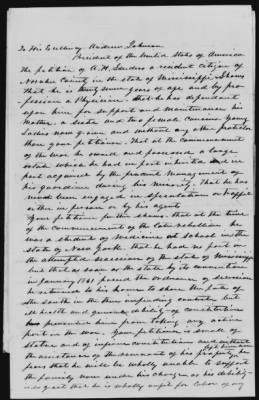 To His Excellency Andrew Johnson
President of the United States of America
The petition of A. H. Sanders a resident citizen of
Noxubee County in the state of Mississippi Shows
that he is twenty seven years of age and by pro-
fession a Physician. that he has dependent
upon him for support and Maintenance his
mother a sister and two female cousins young
Ladies now grown and without any other protector
than your petitioner. That at the commencement
of the war he owned and possessed a large
estate which he had in part inherited and in
part acquired by the prudent Management of
his guardian during his minority. That he has
never been engage in speculation or traffic
either in person or by his agents
Your petitioner further shows that at the time
of the commencement of the late rebellion he
was a student of Medicine at school in the
state of New York. that he had no part in
the attempted secession of the state of Mississippi
but that as soon as the state by its convention
in January 1861 passed the ordinance of secession
he returned to his home to share the fate of
the south in the then impending contest but
ill health and general debility of constitution
has prevented him from taking any active
part in the war. Your petitioner is small of
stature and of infirm constitution and without
the assistance of the remnant of his property he
fears that he will be wholly unable to support
the family now under his charge as his debility
is so great that he is wholly unfit for labor of any